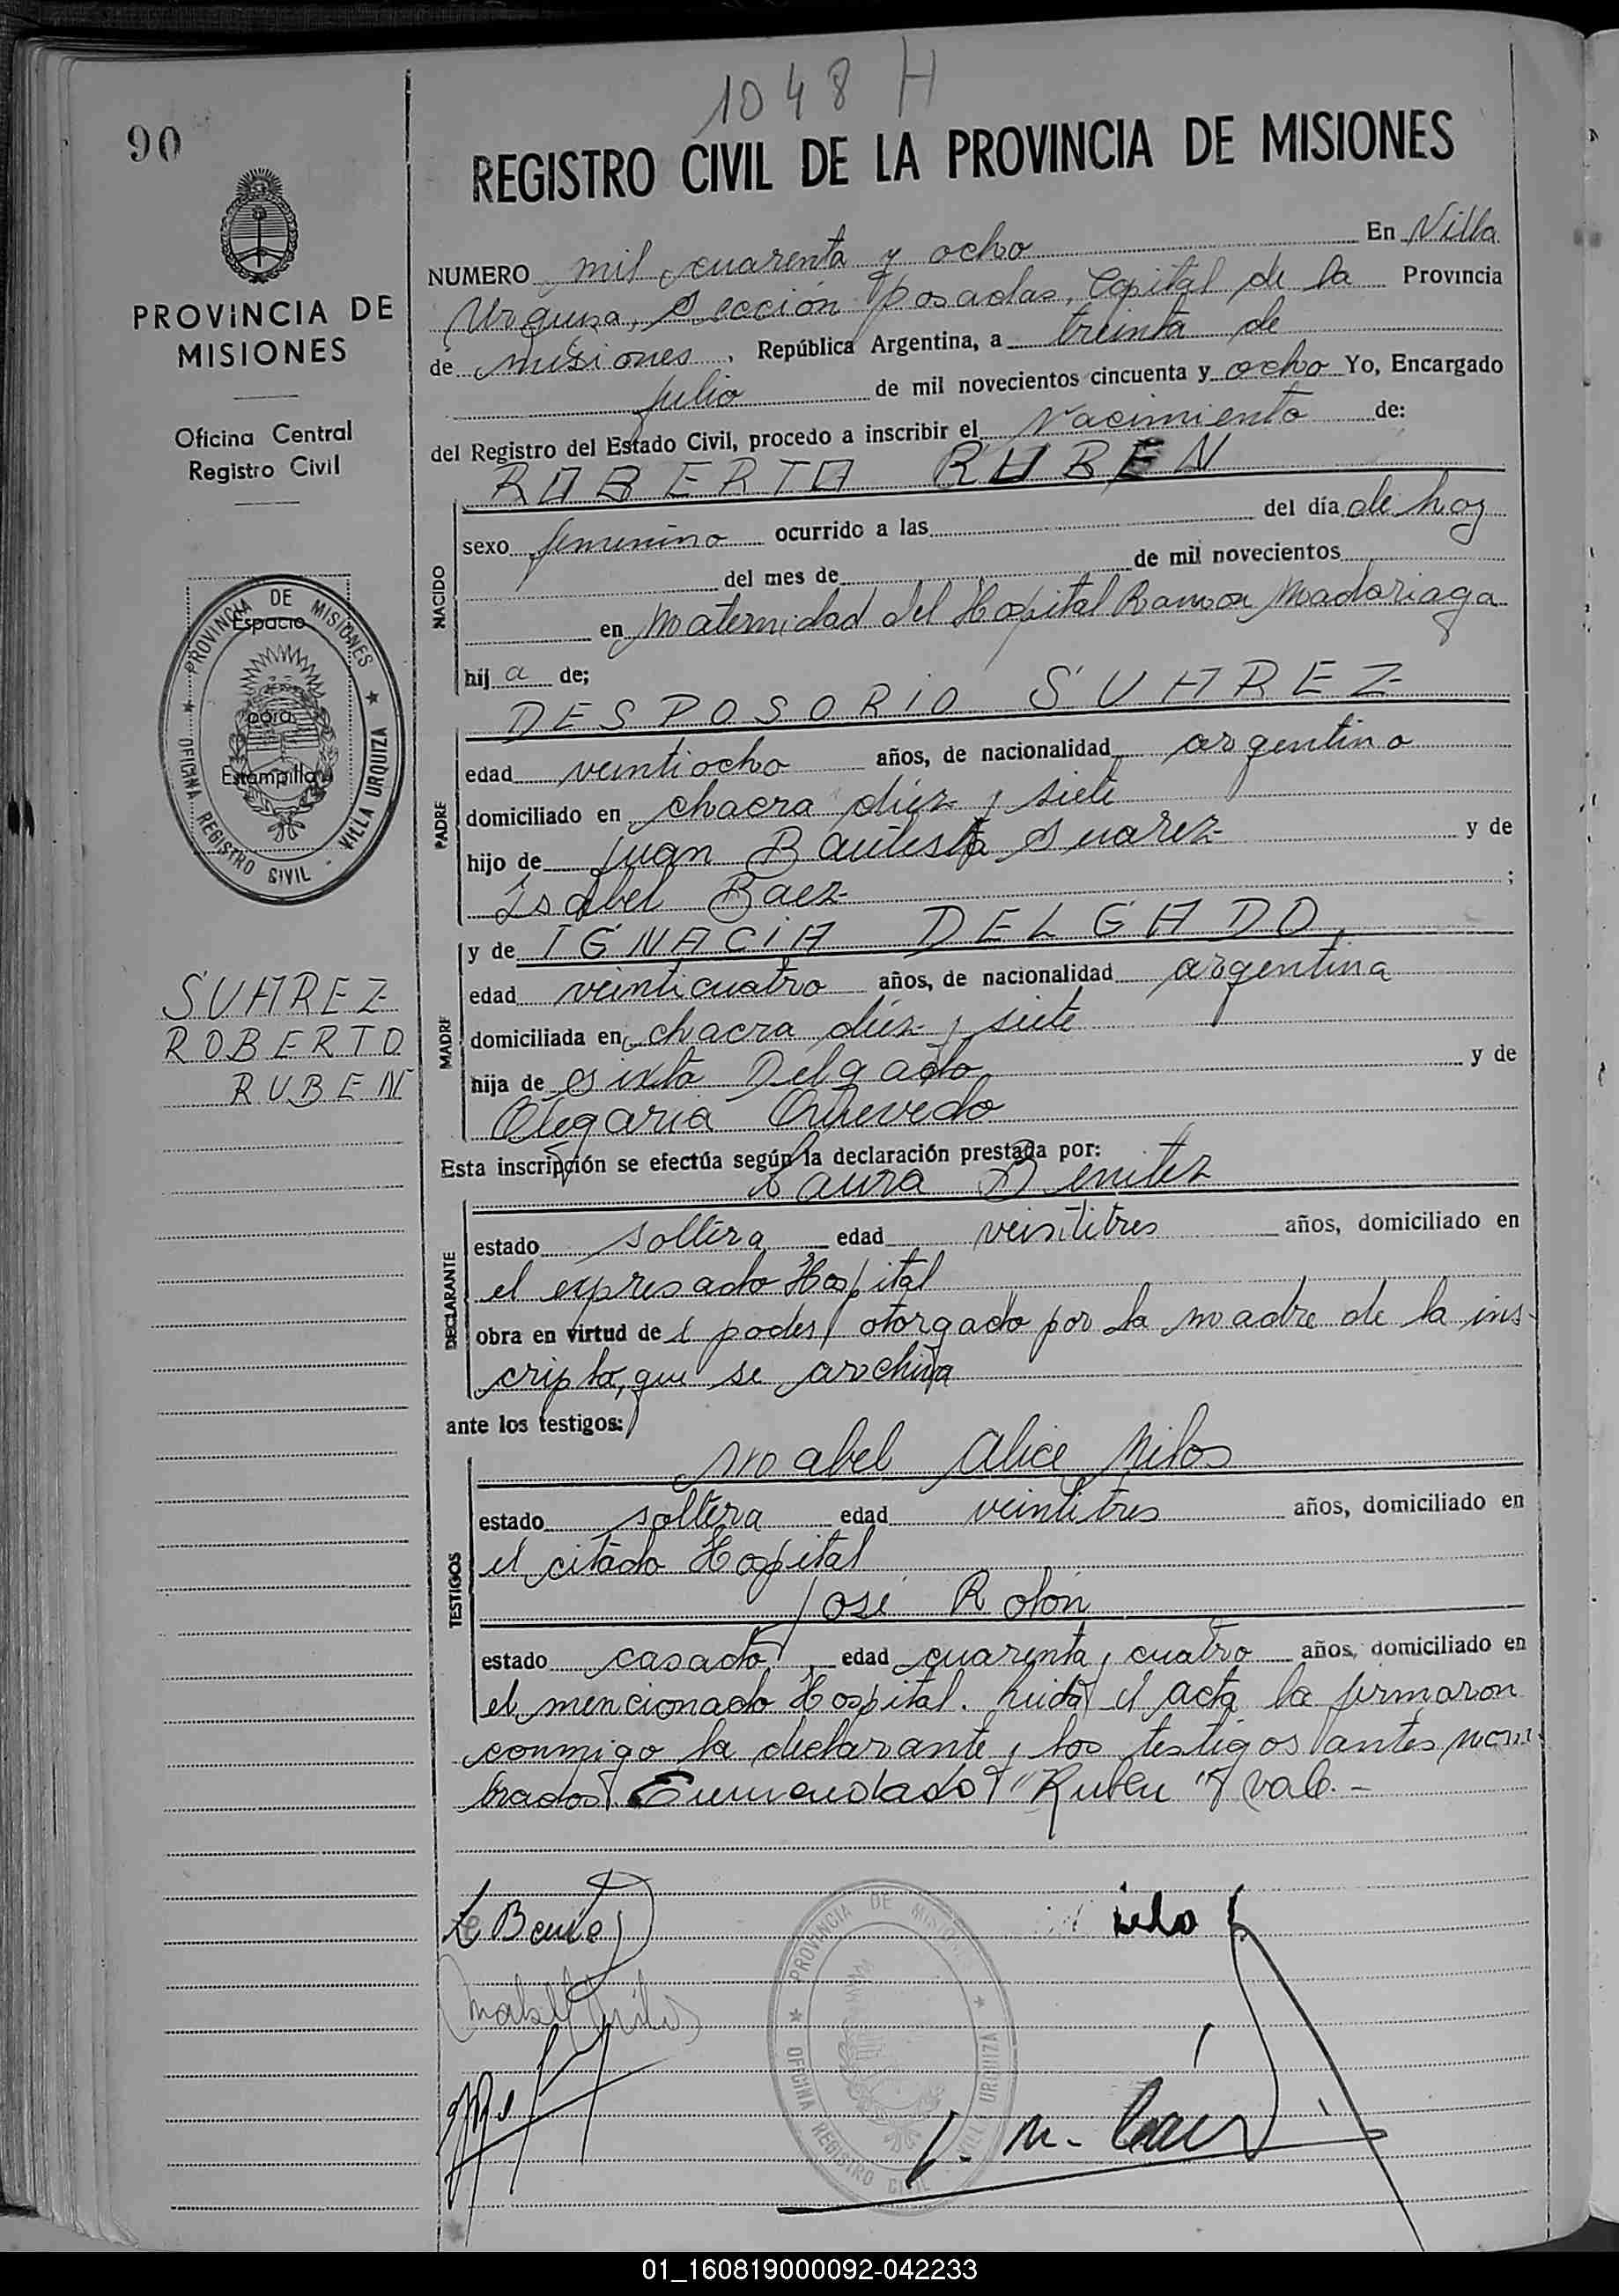 1048 H
90
REGISTRO CIVIL DE LA PROVINCIA DE MISIONES
PROVINCIA DE
MISIONES
Oficina Central
Registro Civil
NUMERO mil cuarenta y ocho En Villa
Urquiza, Sección Posadas, Capital de la Provincia
de Misiones, República Argentina, a treinta de
julio de mil novecientos cincuenta y ocho Yo, Encargado
del Registro del Estado Civil, procedo a inscribir el Nacimiento de:
ROBERTO RUBEN
NACIDO
sexo femenino ocurrido a las del día de hoy
del mes de de mil novecientos
en Maternidad del Hospital Ramon Madariaga
hij a de;
DESPOSORIO SUAREZ
PADRE
edad veintiocho años, de nacionalidad argentino
domiciliado en chacra diez y siete
hijo de Juan Bautista Suarez y de
Isabel Baez ;
MADRE
y de IGNACIA DELGADO
edad veinticuatro años, de nacionalidad argentina
domiciliada en chacra diez y siete
hija de Sixto Delgado y de
Olegaria Quevedo
Esta inscripción se efectúa según la declaración prestada por:
Laura Benitez
DECLARANTE
estado soltera edad veintitres años, domiciliado en
el expresado Hospital
obra en virtud de l poder otorgado por la madre de la ins-
cripta, que se archiva
ante los testigos:
Mabel Alice Milos
TESTIGOS
estado soltera edad veintitres años, domiciliado en
el citado Hospital
José Rolon
estado casado, edad cuarenta y cuatro años, domiciliado en
el mencionado Hospital. Leida el acta la firmaron
conmigo la declarante y los testigos antes nom-
brados. Enmendado "Ruben" vale.-
PROVINCIA DE MISIONES
OFICINA REGISTRO CIVIL - VILLA URQUIZA
Espacio
para
Estampilla
SUAREZ
ROBERTO
RUBEN
L Benitez
PROVINCIA DE MISIONES
OFICINA REGISTRO CIVIL VILLA URQUIZA
01_160819000092-042233